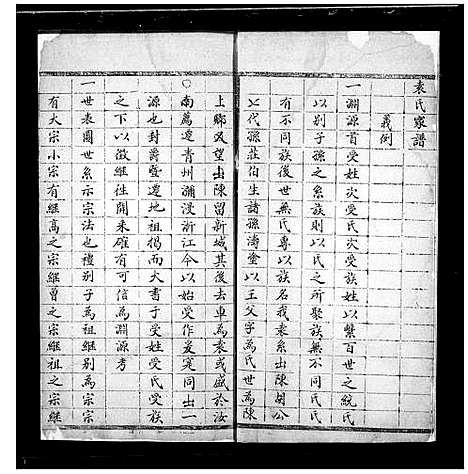 袁氏家譜
義例
一淵源首受姓次受氏次受族姓以繫百世之統氏
以别子孫之系族則以氏之所聚族無不同氏氏
有不同族後世無氏專以族名我袁系出陳胡公
七代孫莊伯生諸孫濤塗以王父字為氏世為陳
上鄉又望出陳留新城其後去車為袁或盛於汝
南蔫迻青州瀰漫浙江今以始受作爰寔同出一
源也封爵暨遷地祖楬而大書于受姓受氏受族
之下以徵継徃開来確有可信為淵源考
一世表圖世系示宗法也禮别子為祖継别為宗宗
有大宗小宗有継高之宗継曽之宗継祖之宗継